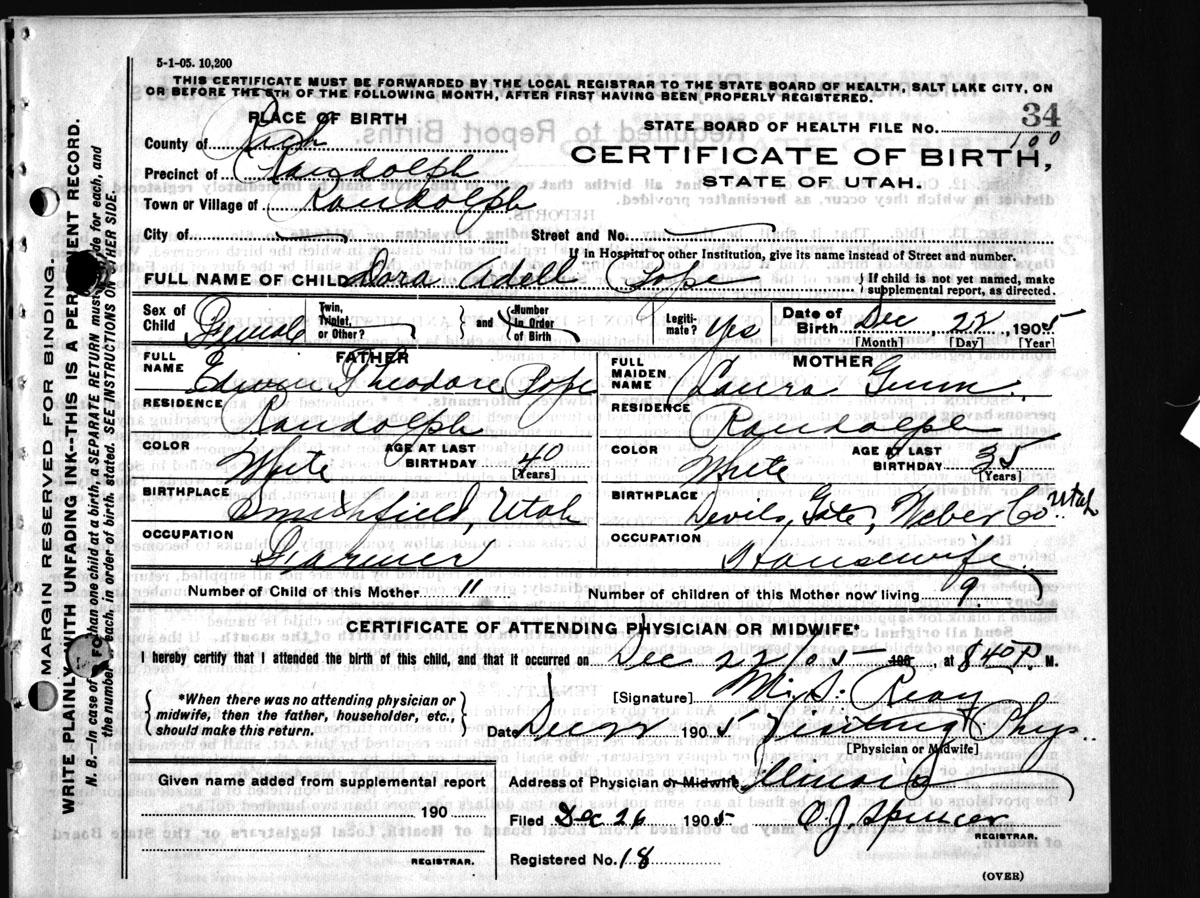 5-1-05. 10,200
THIS CERTIFICATE MUST BE FORWARDED BY THE LOCAL REGISTRAR TO THE STATE BOARD OF HEALTH, SALT LAKE CITY, ON
OR BEFORE THE 5TH OF THE FOLLOWING MONTH, AFTER FIRST HAVING BEEN PROPERLY REGISTERED.
PLACE OF BIRTH
34
STATE BOARD OF HEALTH FILE NO. 100
County of Rich
CERTIFICATE OF BIRTH,
Precinct of Randolph
STATE OF UTAH.
Town or Village of Randolph
City of
Street and No.
If in Hospital or other Institution, give its name instead of Street and number.
FULL NAME OF CHILD Dora Adell Pope
} If child is not yet named, make
supplemental report, as directed.
Sex of Child Female
Twin, Triplet, or Other?
} and { Number in Order of Birth
Legiti-mate? Yes
Date of Birth Dec 22, 1905
[Month] [Day] [Year]
FATHER
FULL NAME Edwin Theodore Pope
RESIDENCE Randolph
COLOR White
AGE AT LAST BIRTHDAY 40 [Years]
BIRTHPLACE Smithfield, Utah
OCCUPATION Farmer
MOTHER
FULL MAIDEN NAME Laura Gunn.
RESIDENCE Randolph
COLOR White
AGE AT LAST BIRTHDAY 35 [Years]
BIRTHPLACE Devils Gate, Weber Co Utah
OCCUPATION Housewife
Number of Child of this Mother 11
Number of children of this Mother now living 9
CERTIFICATE OF ATTENDING PHYSICIAN OR MIDWIFE*
I hereby certify that I attended the birth of this child, and that it occurred on Dec 22 1905 190 , at 8 40 P M.
{ *When there was no attending physician or
midwife, then the father, householder, etc.,
should make this return. }
[Signature] Reay
Date Dec 22 1905 Visiting Phys.
[Physician or Midwife]
Given name added from supplemental report
190
REGISTRAR.
Address of Physician or Midwife Illinois
Filed Dec 26 1905 O.J. Spencer
REGISTRAR.
Registered No. 18
(OVER)
MARGIN RESERVED FOR BINDING.
WRITE PLAINLY WITH UNFADING INK--THIS IS A PERMANENT RECORD.
N. B.—In case of more than one child at a birth, a SEPARATE RETURN must be made for each, and
the number of each, in order of birth, stated. SEE INSTRUCTIONS ON OTHER SIDE.